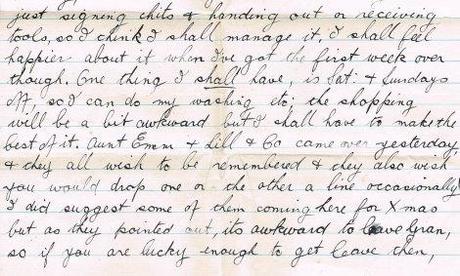 just signing chits & handing out or receiving
tools, so I think I shall manage it. I shall feel
happier about it when I've got the first week over
though. One thing I shall have, is Sat: & Sundays
off, so I can do my washing etc; the shopping
will be a bit awkward but I shall have to make the
best of it. Aunt Emm & Lill & Co came over yesterday,
& they all wish to be remembered & they also wish
you would drop one or the other a line occasionally
I did suggest some of them coming here for Xmas
but as they pointed out, its awkward to leave Gran,
so if you are lucky enough to get leave then,